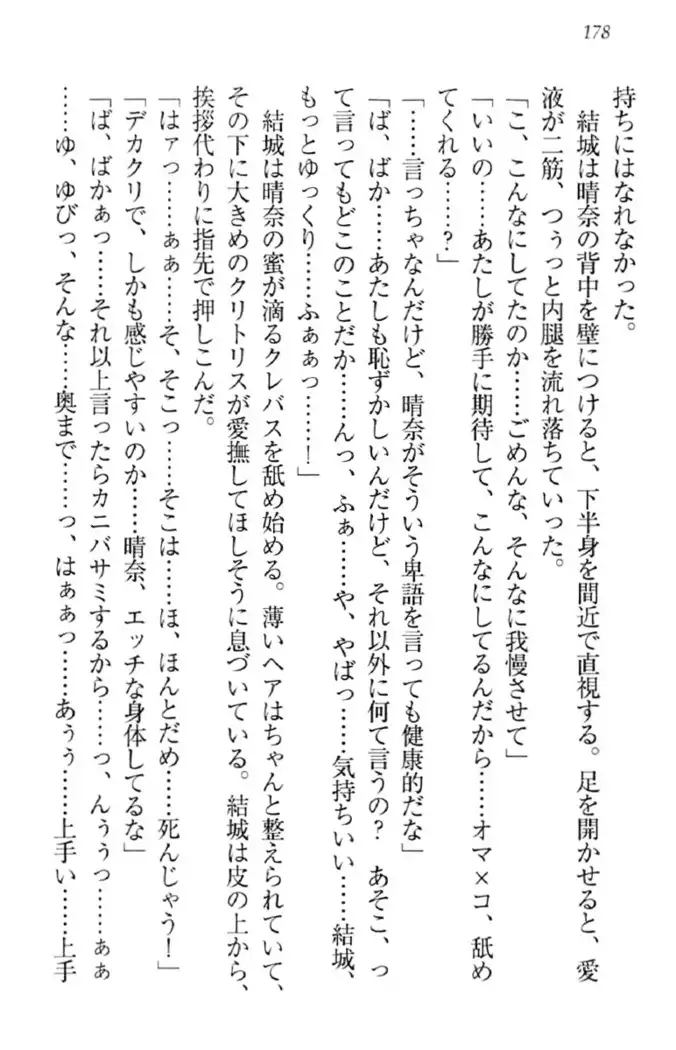 178
持ちにはなれなかった。
　結城は晴奈の背中を壁につけると、下半身を間近で直視する。足を開かせると、愛
液が二筋、つぅっと内腿を流れ落ちていった。
「こ、こんなにしてたのか……ごめんな、そんなに我慢させて」
「いいの……あたしが勝手に期待して、こんなにしてるんだから……オマ×コ、舐め
てくれる……?」
「……言っちゃなんだけど、晴奈がそういう卑語を言っても健康的だな」
「ば、ばか……あたしも恥ずかしいんだけど、それ以外に何て言うの?　あそこ、っ
て言ってもどこのことだか……んっ、ふぁ……や、やばっ……気持ちいい……結城、
もっとゆっくり……ふぁぁっ……!」
　結城は晴奈の蜜が滴るクレバスを舐め始める。薄いヘアはちゃんと整えられていて、
その下に大きめのクリトリスが愛撫してほしそうに息づいている。結城は皮の上から、
挨拶代わりに指先で押しこんだ。
「はァっ……ぁぁ……そ、そこっ……そこは……ほ、ほんとだめ……死んじゃう!」
「デカクリで、しかも感じやすいのか……晴奈、エッチな身体してるな」
「ば、ばかぁっ……それ以上言ったらカニバサミするから……っ、んぅぅっ……ぁぁ
……ゆ、ゆびっ、そんな……奥まで……っ、はぁぁっ……あぅぅ……上手い……上手